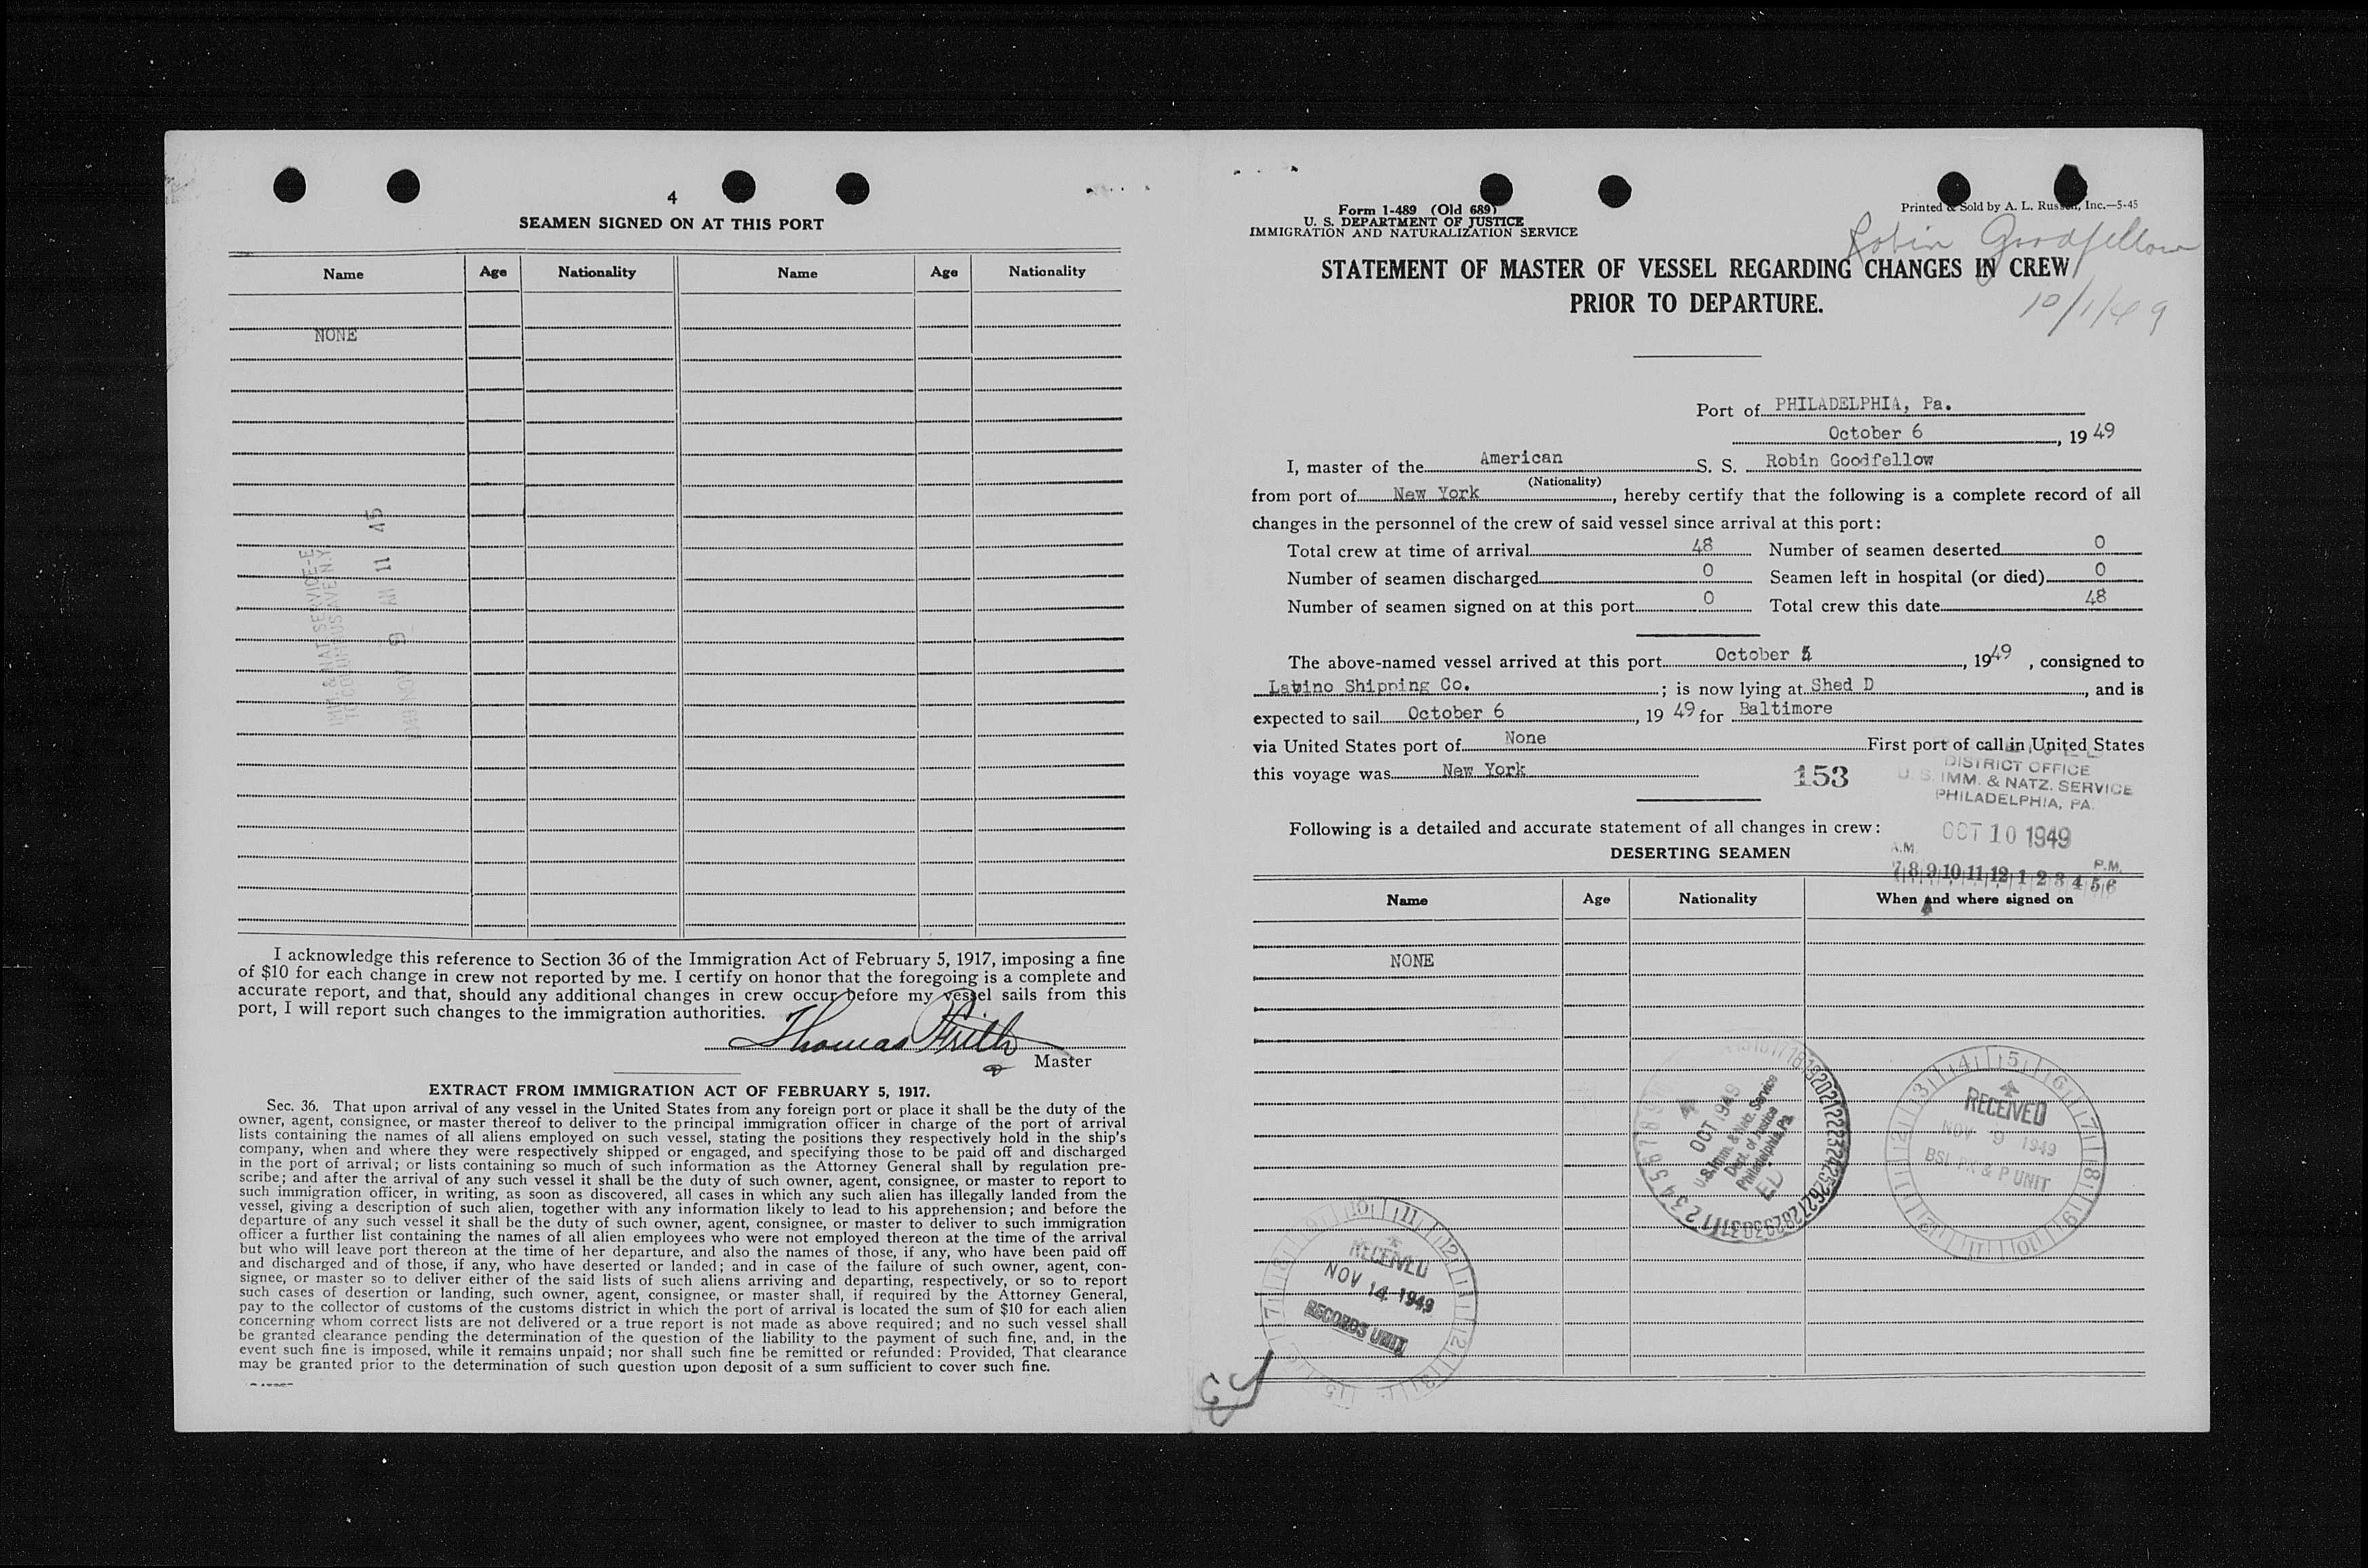 4
SEAMEN SIGNED ON AT THIS PORT
Name Age Nationality Name Age Nationality
NONE
I acknowledge this reference to Section 36 of the Immigration Act of February 5, 1917, imposing a fine
of $10 for each change in crew not reported by me. I certify on honor that the foregoing is a complete and
accurate report, and that, should any additional changes in crew occur before my vessel sails from this
port, I will report such changes to the immigration authorities.
Thomas
Master
EXTRACT FROM IMMIGRATION ACT OF FEBRUARY 5, 1917.
Sec. 36. That upon arrival of any vessel in the United States from any foreign port or place it shall be the duty of the
owner, agent, consignee, or master thereof to deliver to the principal immigration officer in charge of the port of arrival
lists containing the names of all aliens employed on such vessel, stating the positions they respectively hold in the ship's
company, when and where they were respectively shipped or engaged, and specifying those to be paid off and discharged
in the port of arrival; or lists containing so much of such information as the Attorney General shall by regulation pre-
scribe; and after the arrival of any such vessel it shall be the duty of such owner, agent, consignee, or master to report to
such immigration officer, in writing, as soon as discovered, all cases in which any such alien has illegally landed from the
vessel, giving a description of such alien, together with any information likely to lead to his apprehension; and before the
departure of any such vessel it shall be the duty of such owner, agent, consignee, or master to deliver to such immigration
officer a further list containing the names of all alien employees who were not employed thereon at the time of the arrival
but who will leave port thereon at the time of her departure, and also the names of those, if any, who have been paid off
and discharged and of those, if any, who have deserted or landed; and in case of the failure of such owner, agent, con-
signee, or master so to deliver either of the said lists of such aliens arriving and departing, respectively, or so to report
such cases of desertion or landing, such owner, agent, consignee, or master shall, if required by the Attorney General,
pay to the collector of customs of the customs district in which the port of arrival is located the sum of $10 for each alien
concerning whom correct lists are not delivered or a true report is not made as above required; and no such vessel shall
be granted clearance pending the determination of the question of the liability to the payment of such fine, and, in the
event such fine is imposed, while it remains unpaid; nor shall such fine be remitted or refunded: Provided, That clearance
may be granted prior to the determination of such question upon deposit of a sum sufficient to cover such fine.
Form 1-489 (Old 689)
U. S. DEPARTMENT OF JUSTICE
IMMIGRATION AND NATURALIZATION SERVICE
Printed & Sold by A. L. Russell, Inc.—5-45
Robin Goodfellow
STATEMENT OF MASTER OF VESSEL REGARDING CHANGES IN CREW
PRIOR TO DEPARTURE.
10/1/49
Port of PHILADELPHIA, Pa.
October 6, 19 49
I, master of the American S. S. Robin Goodfellow
(Nationality)
from port of New York, hereby certify that the following is a complete record of all
changes in the personnel of the crew of said vessel since arrival at this port:
Total crew at time of arrival 48 Number of seamen deserted 0
Number of seamen discharged 0 Seamen left in hospital (or died) 0
Number of seamen signed on at this port 0 Total crew this date 48
The above-named vessel arrived at this port October , 1949, consigned to
Lavino Shipping Co.; is now lying at Shed D, and is
expected to sail October 6, 19 49 for Baltimore
via United States port of None First port of call in United States
this voyage was New York
153
DISTRICT OFFICE
U. S. IMM. & NATZ. SERVICE
PHILADELPHIA, PA.
OCT 10 1949
A.M. P.M.
7 8 9 10 11 12 1 2 3 4 5 6
Following is a detailed and accurate statement of all changes in crew:
DESERTING SEAMEN
Name Age Nationality When and where signed on
NONE
OCT 1949
U.S. Imm. & Natz. Service
Dept. of Justice
Philadelphia, Pa.
RECEIVED
NOV 9 1949
BSI & P UNIT
RECEIVED
NOV 14 1949
RECORDS UNIT